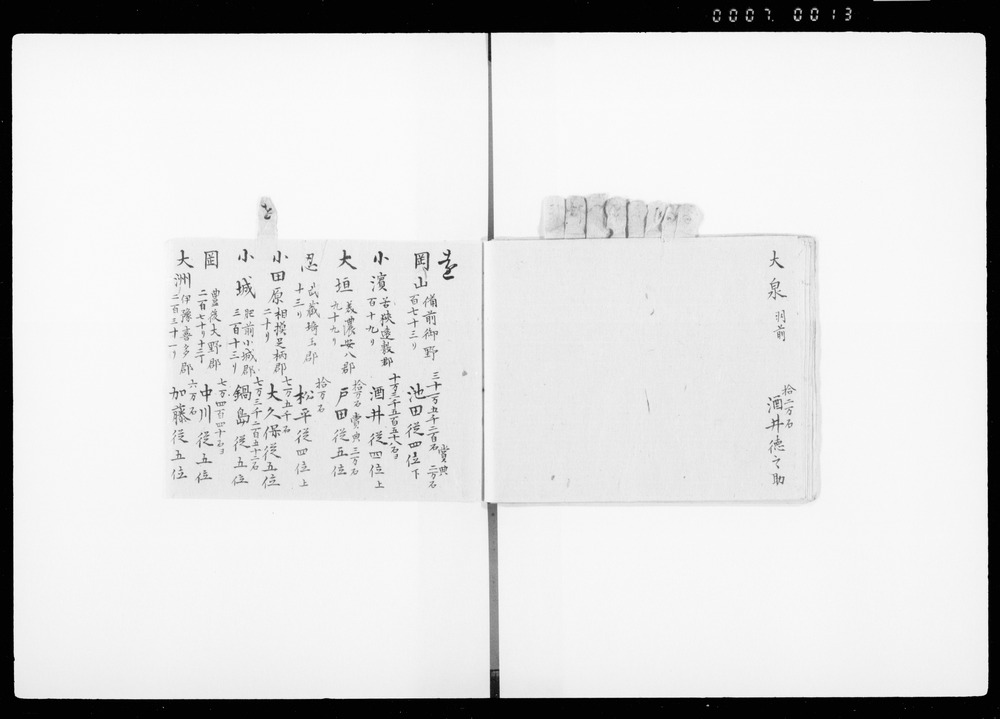 0007 0013
大泉 羽前 拾二万石 酒井徳之助
を
岡山 備前御野 百七十三り 三十一万五千二百石 賞典二万石 池田従四位下
小濱 若狭遠敷郡 百十九り 十万三千五百五十八石ヨ 酒井従四位上
大垣 美濃安八郡 九十九り 拾万石 賞典三万石 戸田従五位
忍 武蔵埼玉郡 十三り 拾万石 松平従四位上
小田原 相摸足柄郡 二十り 七万五千石 大久保従五位
小城 肥前小城郡 三百十三り 七万三千二百五十二石 鍋島従五位
岡 豊後大野郡 二百七十り十三丁 七万四百四十石ヨ 中川従五位
大洲 伊豫喜多郡 二百三十一り 六万石 加藤従五位